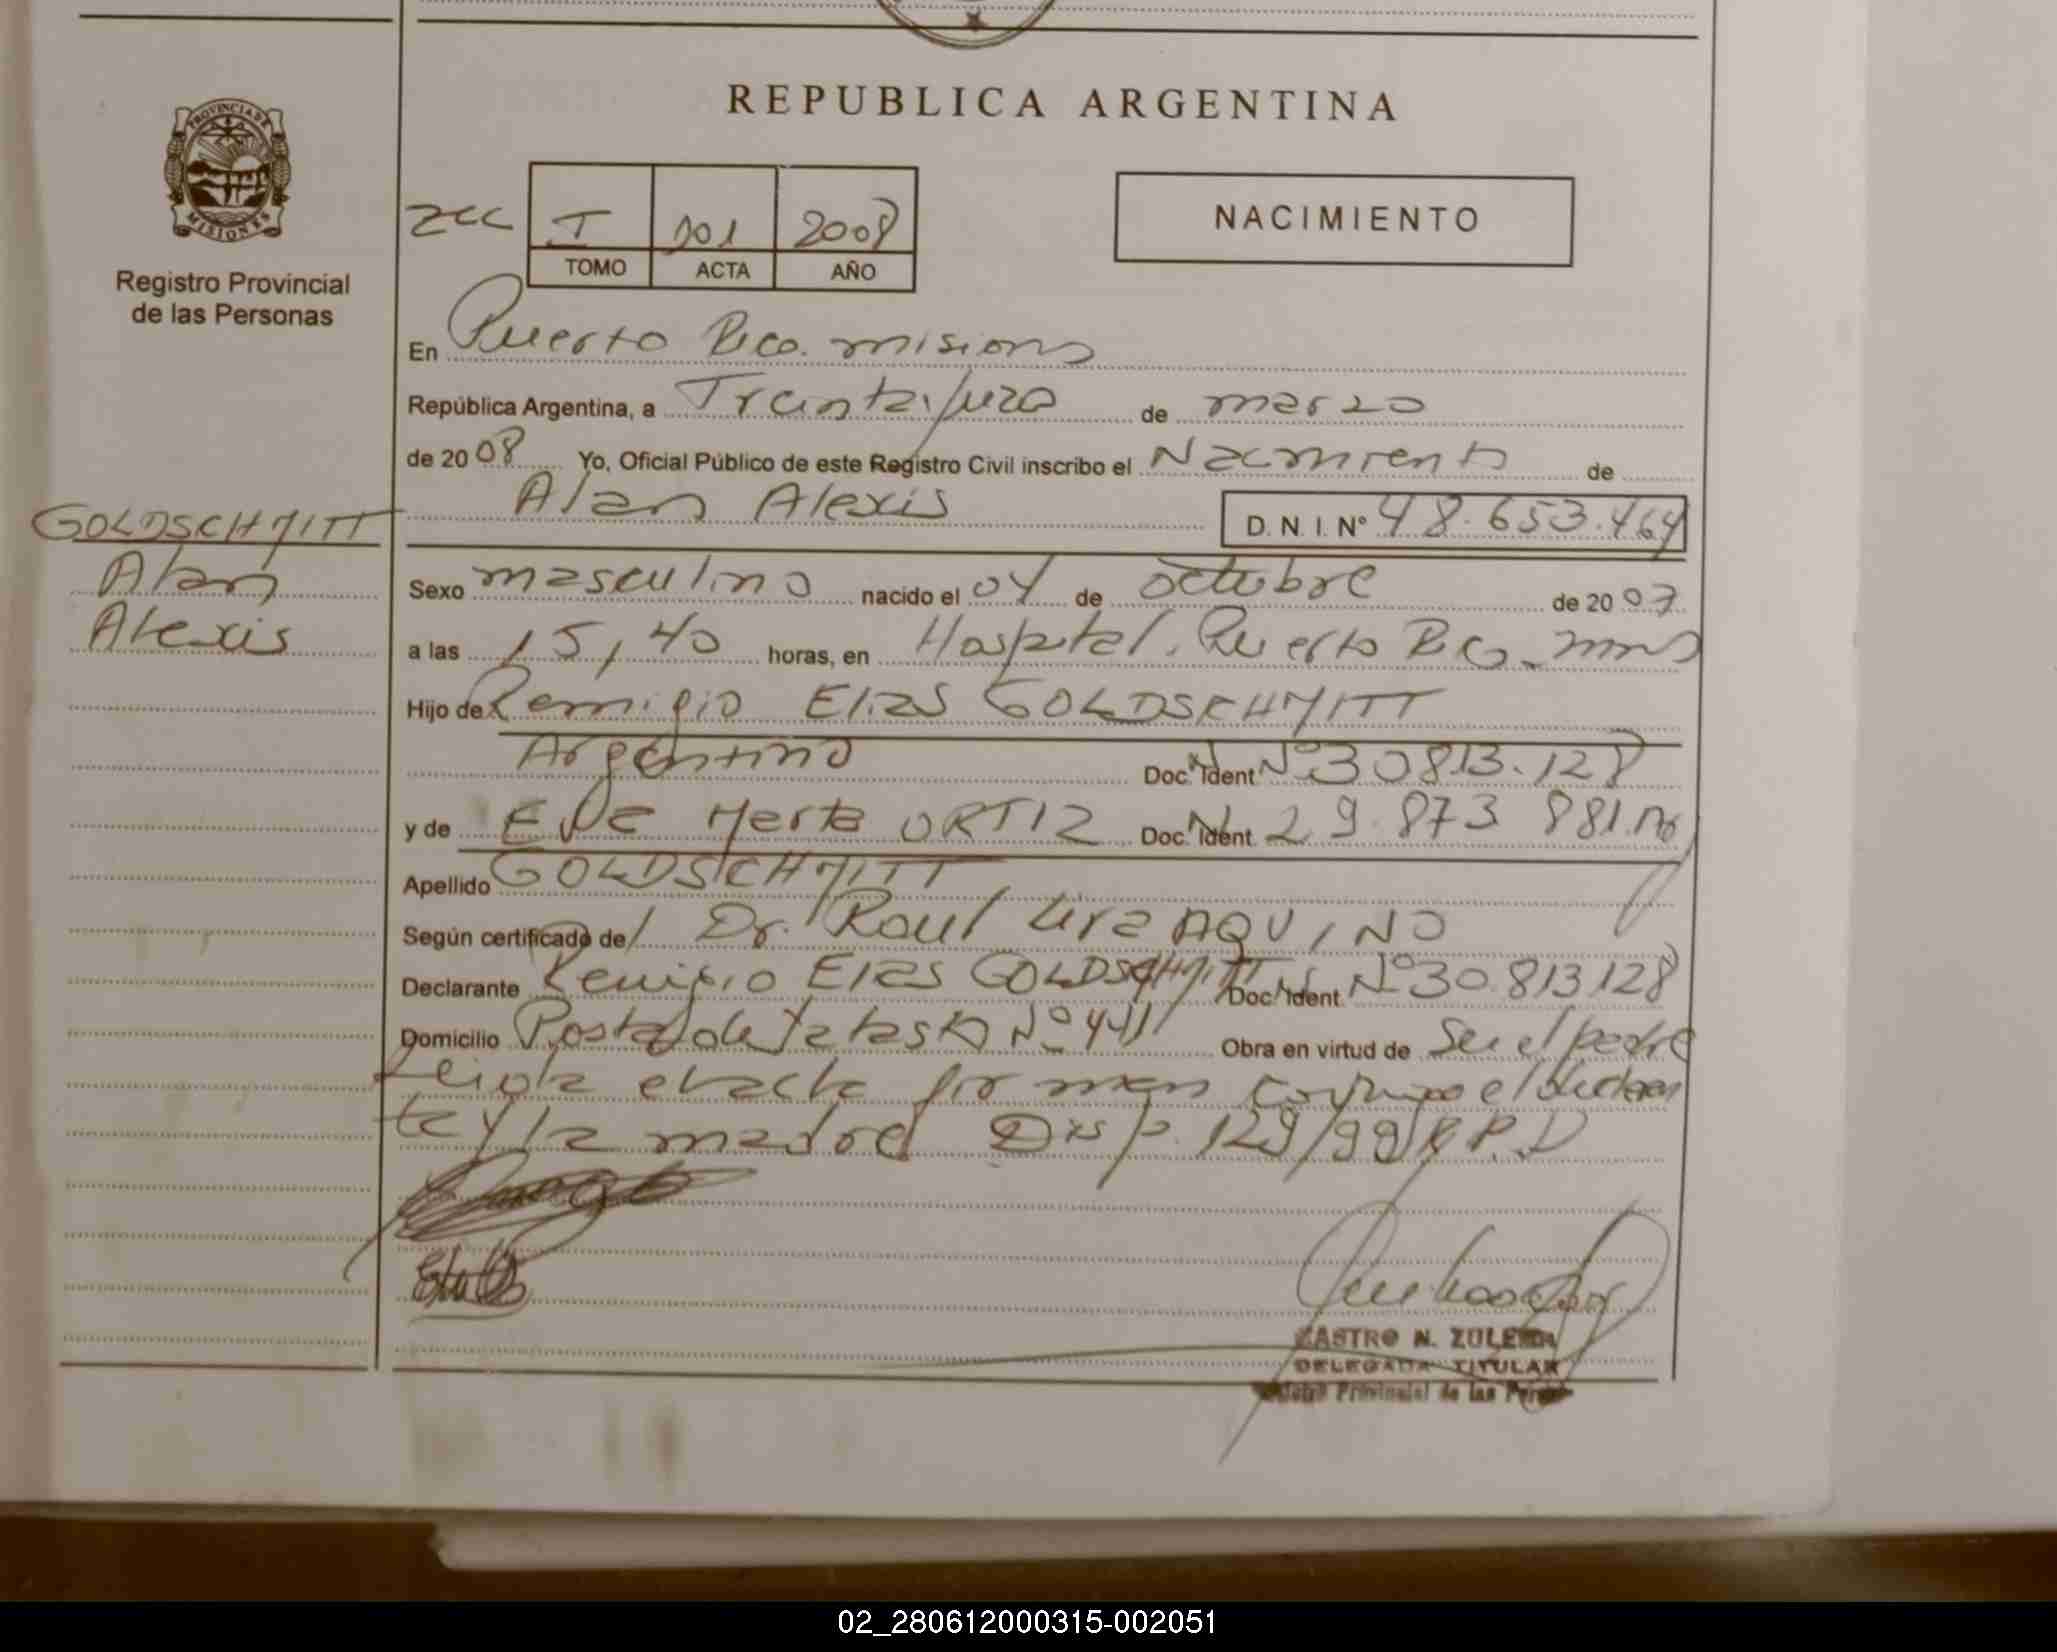 REPUBLICA ARGENTINA
PROVINCIA DE
MISIONES
Registro Provincial
de las Personas
I 101 2008
TOMO ACTA AÑO
NACIMIENTO
En Puerto Rico. misiones
República Argentina, a Treinta y uno de marzo
de 2008 Yo, Oficial Público de este Registro Civil inscribo el Nacimiento de
Alan Alexis D. N. I. N° 48.653.464
GOLDSCHMITT
Alan
Alexis
Sexo masculino nacido el 04 de octubre de 2007
a las 15,40 horas, en Hospital. Puerto Rico - mns
Hijo de Remigio Elias GOLDSCHMITT
Argentino Doc. Ident N° 30813.128
y de Eva Marta ORTIZ Doc. Ident. 29.873 881
Apellido GOLDSCHMITT
Según certificado del Dr. Raul AQUINO
Declarante Remigio Elias GOLDSCHMITT Doc. Ident N° 30.813.128
Domicilio Posta de Yatasto N° 441 Obra en virtud de Ser el padre
Leida el acta firman conmigo el declaran
te y la madre Disp. 129/99 R.P.D
CASTRO N. ZULEMA
DELEGADA TITULAR
Provincial de las
02_280612000315-002051